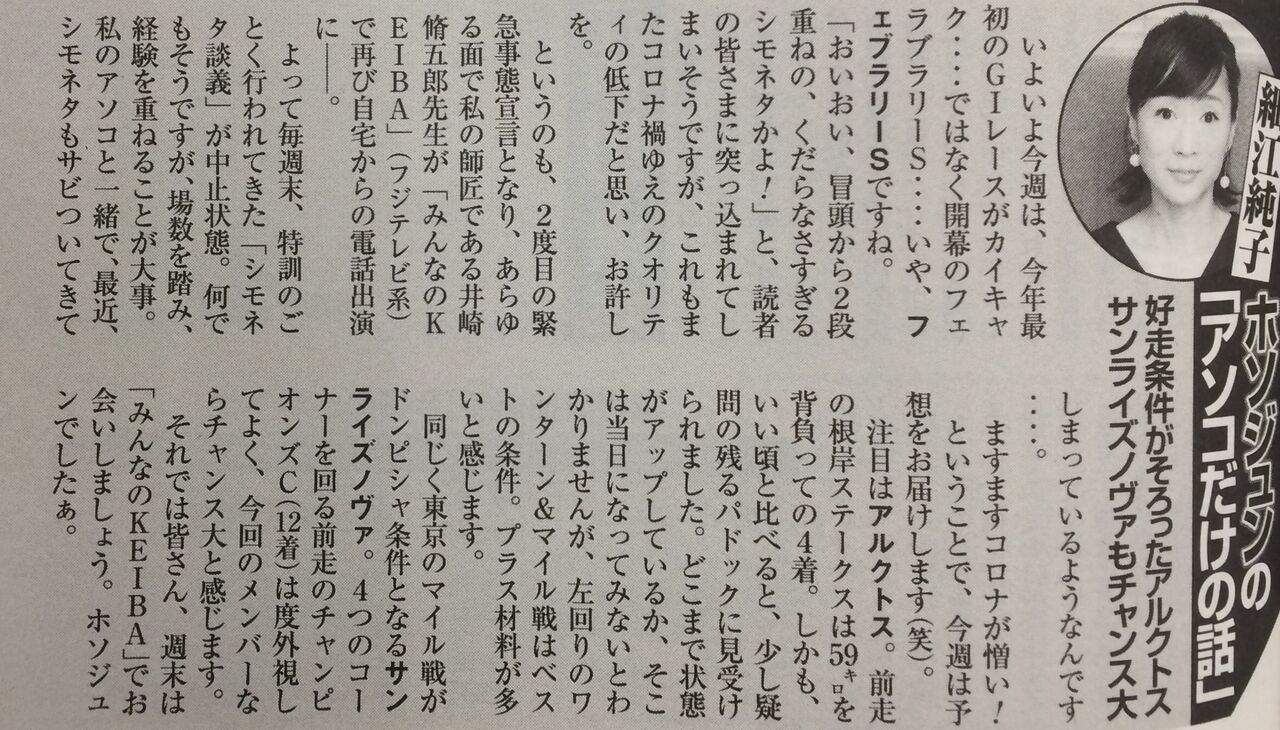 細江純子
ホソジュンの
「アソコだけの話」
好走条件がそろったアルクトス
サンライズノヴァもチャンス大
いよいよ今週は、今年最
初のGⅠレースがカイキャ
ク‥‥ではなく開幕のフェ
ラブラリーS‥‥いや、フ
ェブラリーSですね。
「おいおい、冒頭から2段
重ねの、くだらなさすぎる
シモネタかよ!」と、読者
の皆さまに突っ込まれてし
まいそうですが、これもま
たコロナ禍ゆえのクオリテ
ィの低下だと思い、お許し
を。
というのも、2度目の緊
急事態宣言となり、あらゆ
る面で私の師匠である井崎
脩五郎先生が「みんなのK
EIBA」(フジテレビ系)
で再び自宅からの電話出演
に――。
よって毎週末、特訓のご
とく行われてきた「シモネ
タ談義」が中止状態。何で
もそうですが、場数を踏み、
経験を重ねることが大事。
私のアソコと一緒で、最近、
シモネタもサビついてきて
しまっているようなんです
‥‥。
ますますコロナが憎い!
ということで、今週は予
想をお届けします(笑)。
注目はアルクトス。前走
の根岸ステークスは59㌔を
背負っての4着。しかも、
いい頃と比べると、少し疑
問の残るパドックに見受け
られました。どこまで状態
がアップしているか、そこ
は当日になってみないとわ
かりませんが、左回りのワ
ンターン&マイル戦はベス
トの条件。プラス材料が多
いと感じます。
同じく東京のマイル戦が
ドンピシャ条件となるサン
ライズノヴァ。4つのコー
ナーを回る前走のチャンピ
オンズC(12着)は度外視し
てよく、今回のメンバーな
らチャンス大と感じます。
それでは皆さん、週末は
「みんなのKEIBA」でお
会いしましょう。ホソジュ
ンでしたぁ。